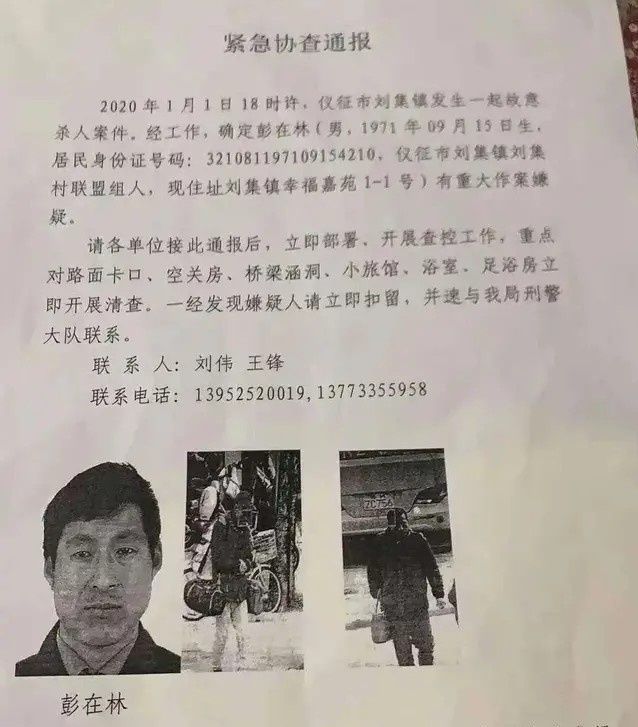 紧急协查通报
2020年1月1日18时许，仪征市刘集镇发生一起故意
杀人案件。经工作，确定彭在林（男，1971年09月15日生，
居民身份证号码：321081197109154210，仪征市刘集镇刘集
村联盟组人，现住址刘集镇幸福嘉苑1-1号）有重大作案嫌
疑。
请各单位接此通报后，立即部署、开展查控工作，重点
对路面卡口、空关房、桥梁涵洞、小旅馆、浴室、足浴房立
即开展清查。一经发现嫌疑人请立即扣留，并速与我局刑警
大队联系。
联 系 人：刘伟 王锋
联系电话：13952520019,13773355958
彭在林